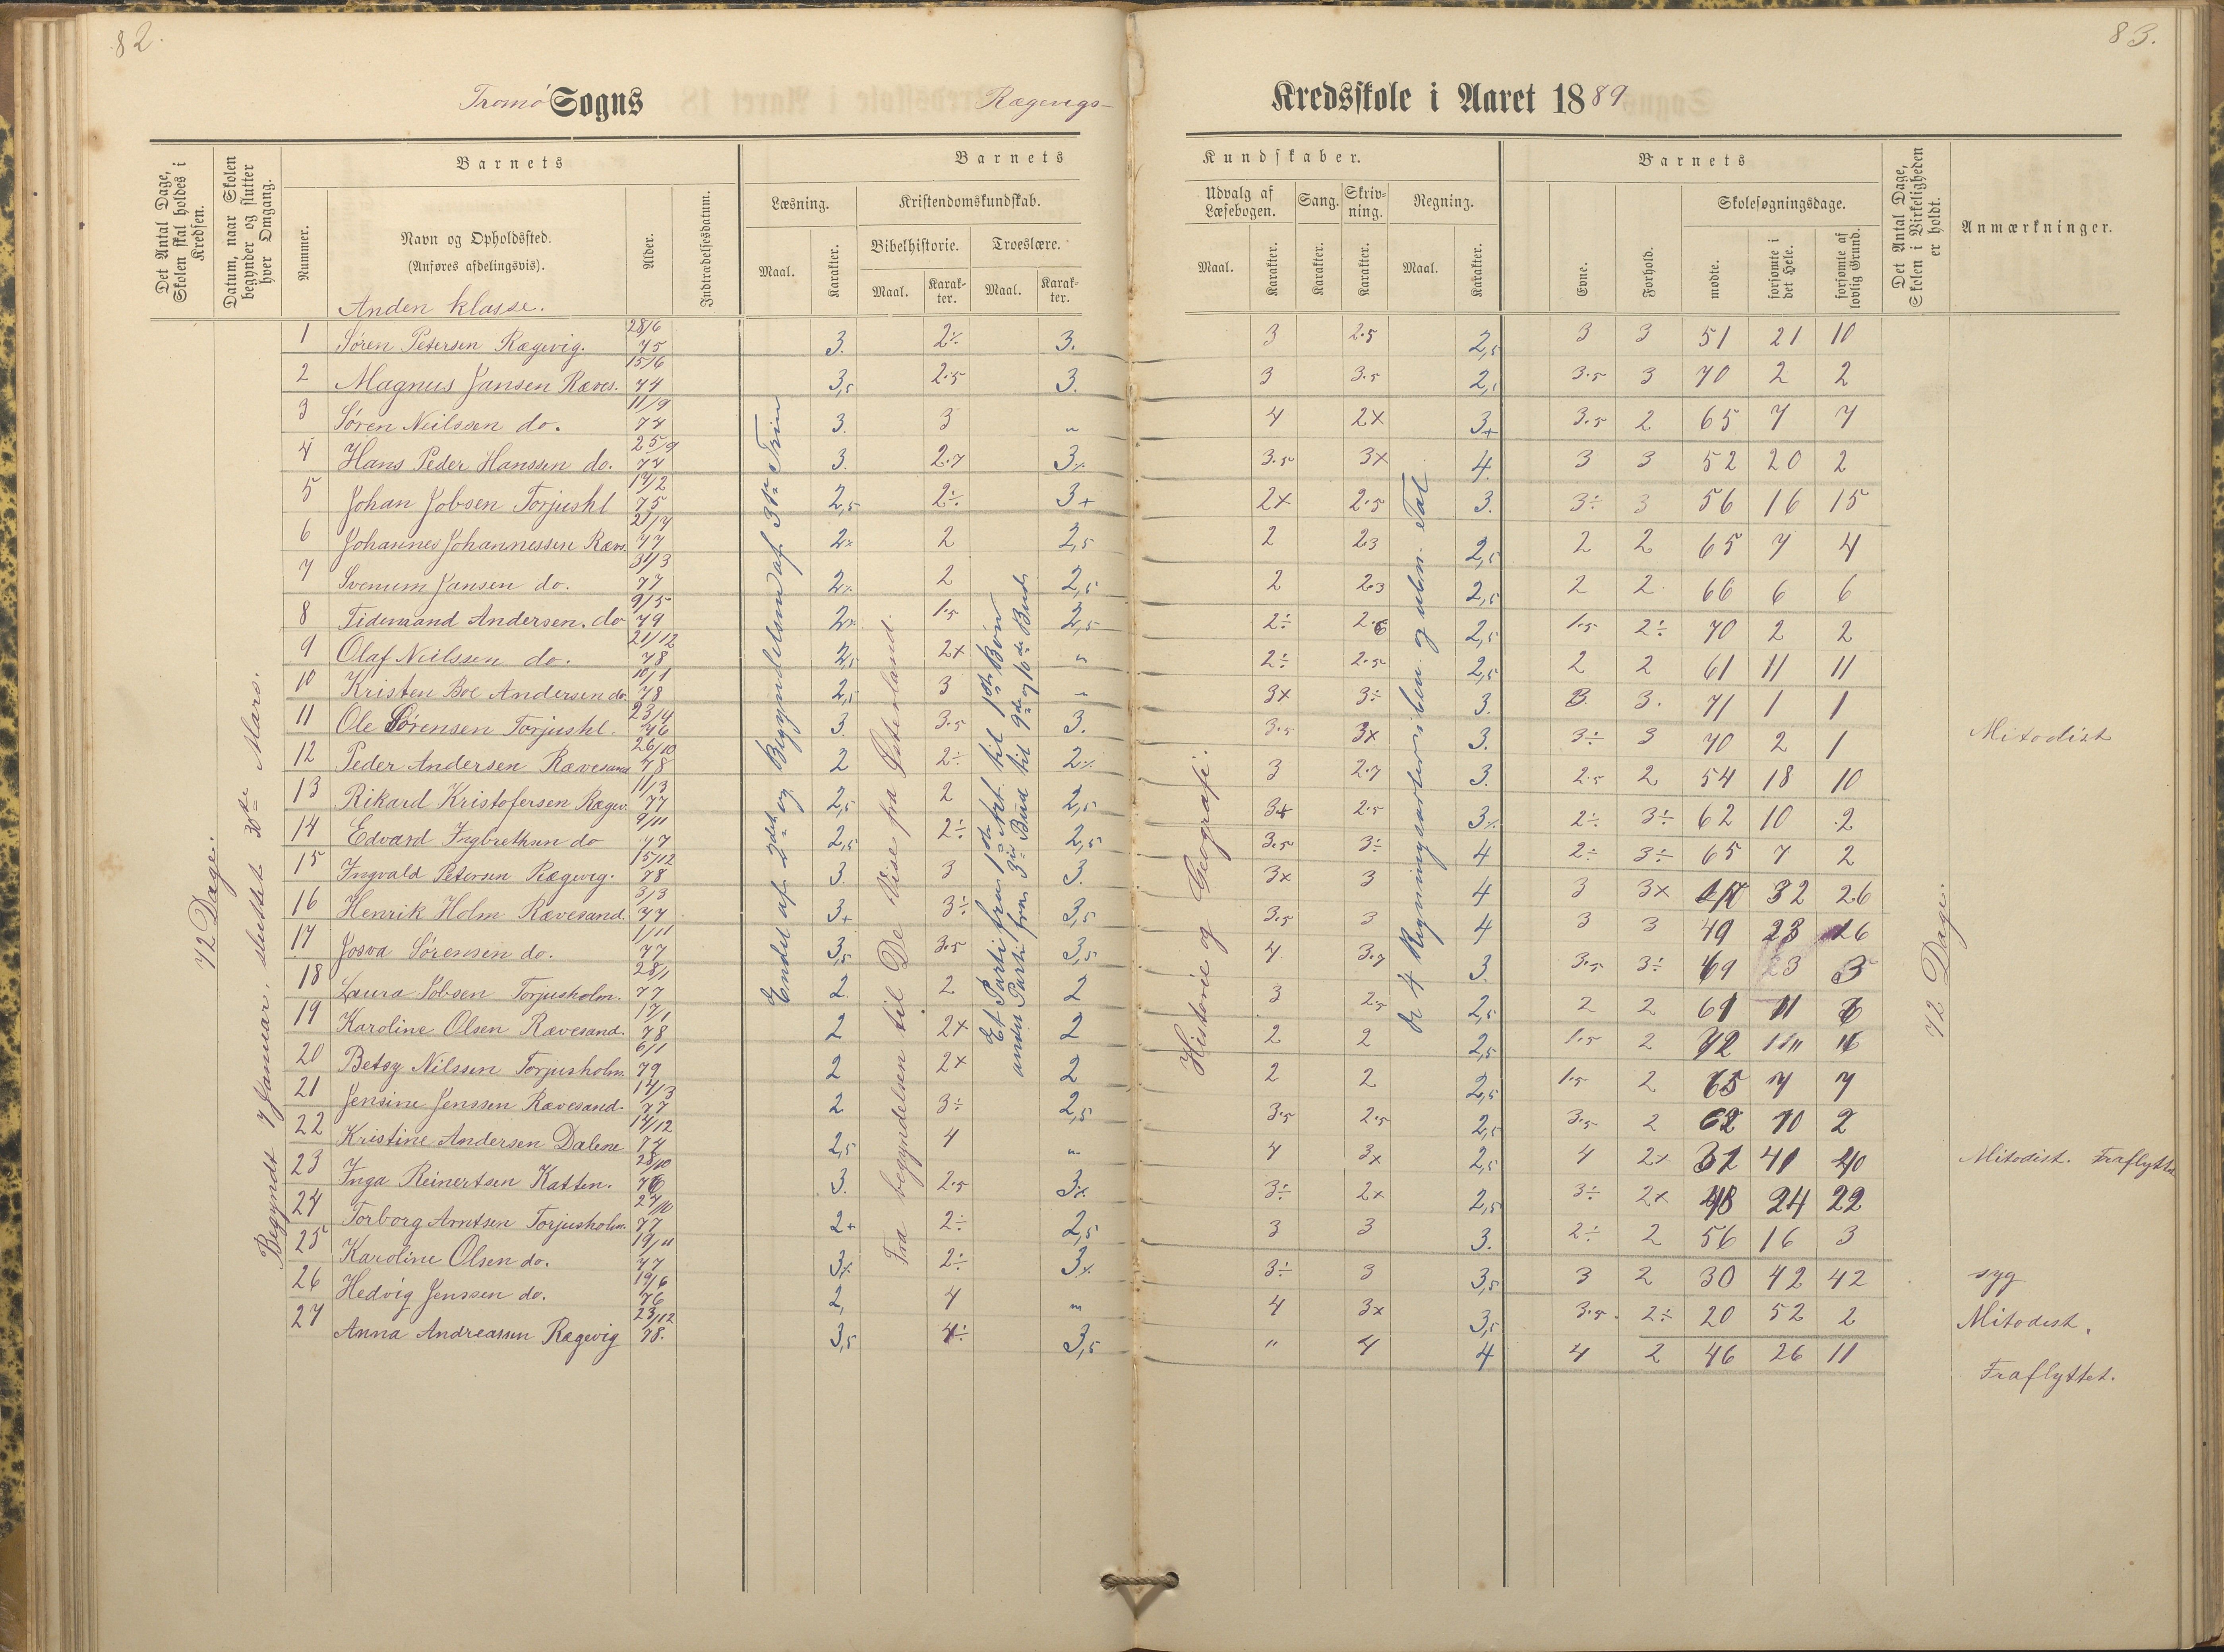 82.
83.
Tromö Sogns
Rægevigs-
Kredsskole i Aaret 1889
Det Antal Dage, Skolen skal holdes i Kredsen.
Datum, naar Skolen begynder og slutter hver Omgang.
Barnets
Nummer.
Navn og Opholdssted.
(Anføres afdelingsvis).
Alder.
Indtrædelsesdatum.
Barnets
Læsning.
Kristendomskundskab.
Bibelhistorie.
Troeslære.
Maal.
Karakter.
Maal.
Karakter.
Maal.
Karakter.
Kundskaber.
Udvalg af Læsebogen.
Sang.
Skrivning.
Regning.
Maal.
Karakter.
Karakter.
Karakter.
Maal.
Karakter.
Barnets
Evne.
Forhold.
Skolesøgningsdage.
mødte.
forsømte i det Hele.
forsømte af lovlig Grund.
Det Antal Dage, Skolen i Virkeligheden er holdt.
Anmærkninger.
Anden klasse.
72 Dage.
Begyndt 7 Januar, sluttet 30te Mars.
Endel af 2det og Begyndelsen af 3die Trin
Fra begyndelsen til De Vise fra Østerland.
Et Parti fra 1ste Art. til 1ste Bøn
andet Parti fra 3die Bud til 9de og 10de Bud.
Historie og Geografi.
De 4 Regningsarter i ben. og uben. Tal
72 Dage.
1 Søren Petersen Rægevig. 28/6 75 3. 2÷ 3. 3 2.5 2,5 3 3 51 21 10
2 Magnus Jansen Ræves. 15/6 74 3,5 2.5 3. 3 3.5 2,5 3.5 3 70 2 2
3 Søren Neilssen do. 11/9 74 3. 3 " 4 2x 3+ 3.5 2 65 7 7
4 Hans Peder Hanssen do. 25/9 74 3. 2.7 3÷ 3.5 3x 4. 3 3 52 20 2
5 Johan Jobsen Torjushl 17/2 75 2,5 2÷ 3+ 2x 2.5 3. 3÷ 3 56 16 15
6 Johannes Johannessen Ræves. 21/7 77 2x 2 2,5 2 2.3 2,5 2 2 65 7 4
7 Svenum Jansen do. 31/3 77 2÷ 2 2,5 2 2.3 2,5 2 2 66 6 6
8 Tidemand Andersen. do 9/5 79 2÷ 1.5 2,5 2÷ 2.6 2,5 1.5 2÷ 70 2 2
9 Olaf Neilssen do. 21/12 78 2,5 2x " 2÷ 2.5 2,5 2 2 61 11 11
10 Kristen Boe Andersen do. 10/1 78 2,5 3 " 3x 3÷ 3. 3. 3. 71 1 1
11 Ole Sörensen Torjushl. 23/4 76 3. 3.5 3. 3.5 3x 3. 3÷ 3 70 2 1 Mitodist
12 Peder Andersen Rævesand 26/10 78 2 2÷ 2÷ 3 2.7 3. 2.5 2 54 18 10
13 Rikard Kristofersen Rægev. 11/3 77 2,5 2 2,5 3x 2.5 3÷ 2÷ 3÷ 62 10 2
14 Edvard Ingbrethsen do 9/11 77 2,5 2÷ 2,5 3.5 3÷ 4 2÷ 3÷ 65 7 2
15 Ingvald Petersen Rægevig. 15/12 78 3. 3 3. 3x 3 4 3 3x 32 26
16 Henrik Holm Rævesand. 3/3 77 3+ 3÷ 3,5 3.5 3 4 3 3 49 23
17 Josva Sørensen do. 1/11 77 3,5 3.5 3,5 4 3.7 3. 3.5 3÷ 69 3
18 Laura Jobsen Torjusholm. 28/1 77 2. 2 2 3 2.5 2,5 2 2 61 11
19 Karoline Olsen Rævesand. 17/1 78 2 2x 2 2 2 2,5 1.5 2 72
20 Betsy Nilssen Torjusholm 6/1 79 2 2x 2 2 2 2,5 1.5 2 65 7 7
21 Jensine Jenssen Rævesand. 14/3 77 2 3÷ 2,5 3.5 2.5 2,5 3.5 2 62 10 2
22 Kristine Andersen Dalene 14/12 74 2,5 4 " 4 3x 2,5 4 2x 31 41 40 Mitodist. Fraflyttet
23 Inga Reinertsen Katten. 28/10 76 3. 2.5 3x 3÷ 2x 2,5 3÷ 2x 48 24 22
24 Torborg Arntsen Torjusholm. 27/10 77 2+ 2÷ 2,5 3 3 3. 2÷ 2 56 16 3
25 Karoline Olsen do. 19/11 77 3÷ 2÷ 3÷ 3÷ 3 3,5 3 2 30 42 42 syg
26 Hedvig Jenssen do. 19/6 76 2, 4 " 4 3x 3,5 3.5. 2÷ 20 52 2 Mitodist.
27 Anna Andreassen Rægevig 23/12 78. 3,5 4÷ 3,5 " 4 4 4 2 46 26 11 Fraflyttet.